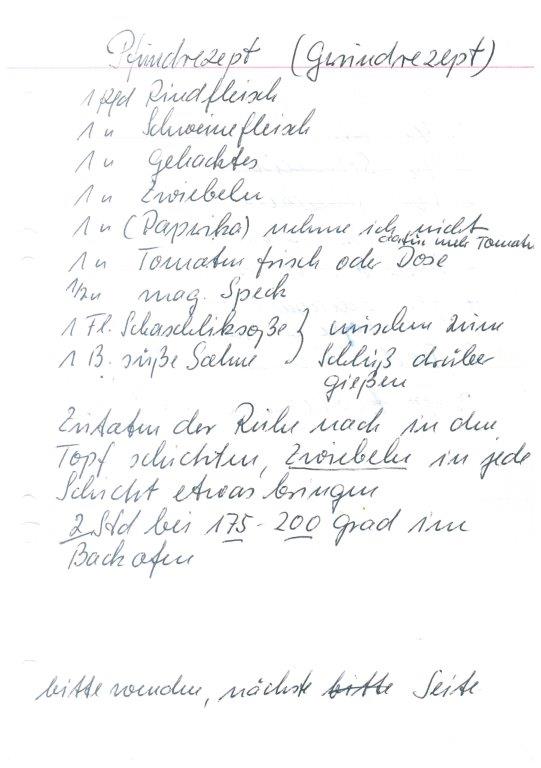 Pfundrezept (Grundrezept)
1 Pfd Rindfleisch
1 " Schweinefleisch
1 " gehacktes
1 " Zwiebeln
1 " (Paprika) nehme ich nicht
dafür mehr Tomaten
1 " Tomaten frisch oder Dose
1/2 " mag. Speck
1 Fl. Schaschliksoße } mischen zum
1 B. süße Sahne } Schluß drüber
gießen
Zutaten der Reihe nach in den
Topf schichten, Zwiebeln in jede
Schicht etwas bringen
2 Std bei 175 - 200 Grad im
Backofen
bitte wenden, nächste bitte Seite